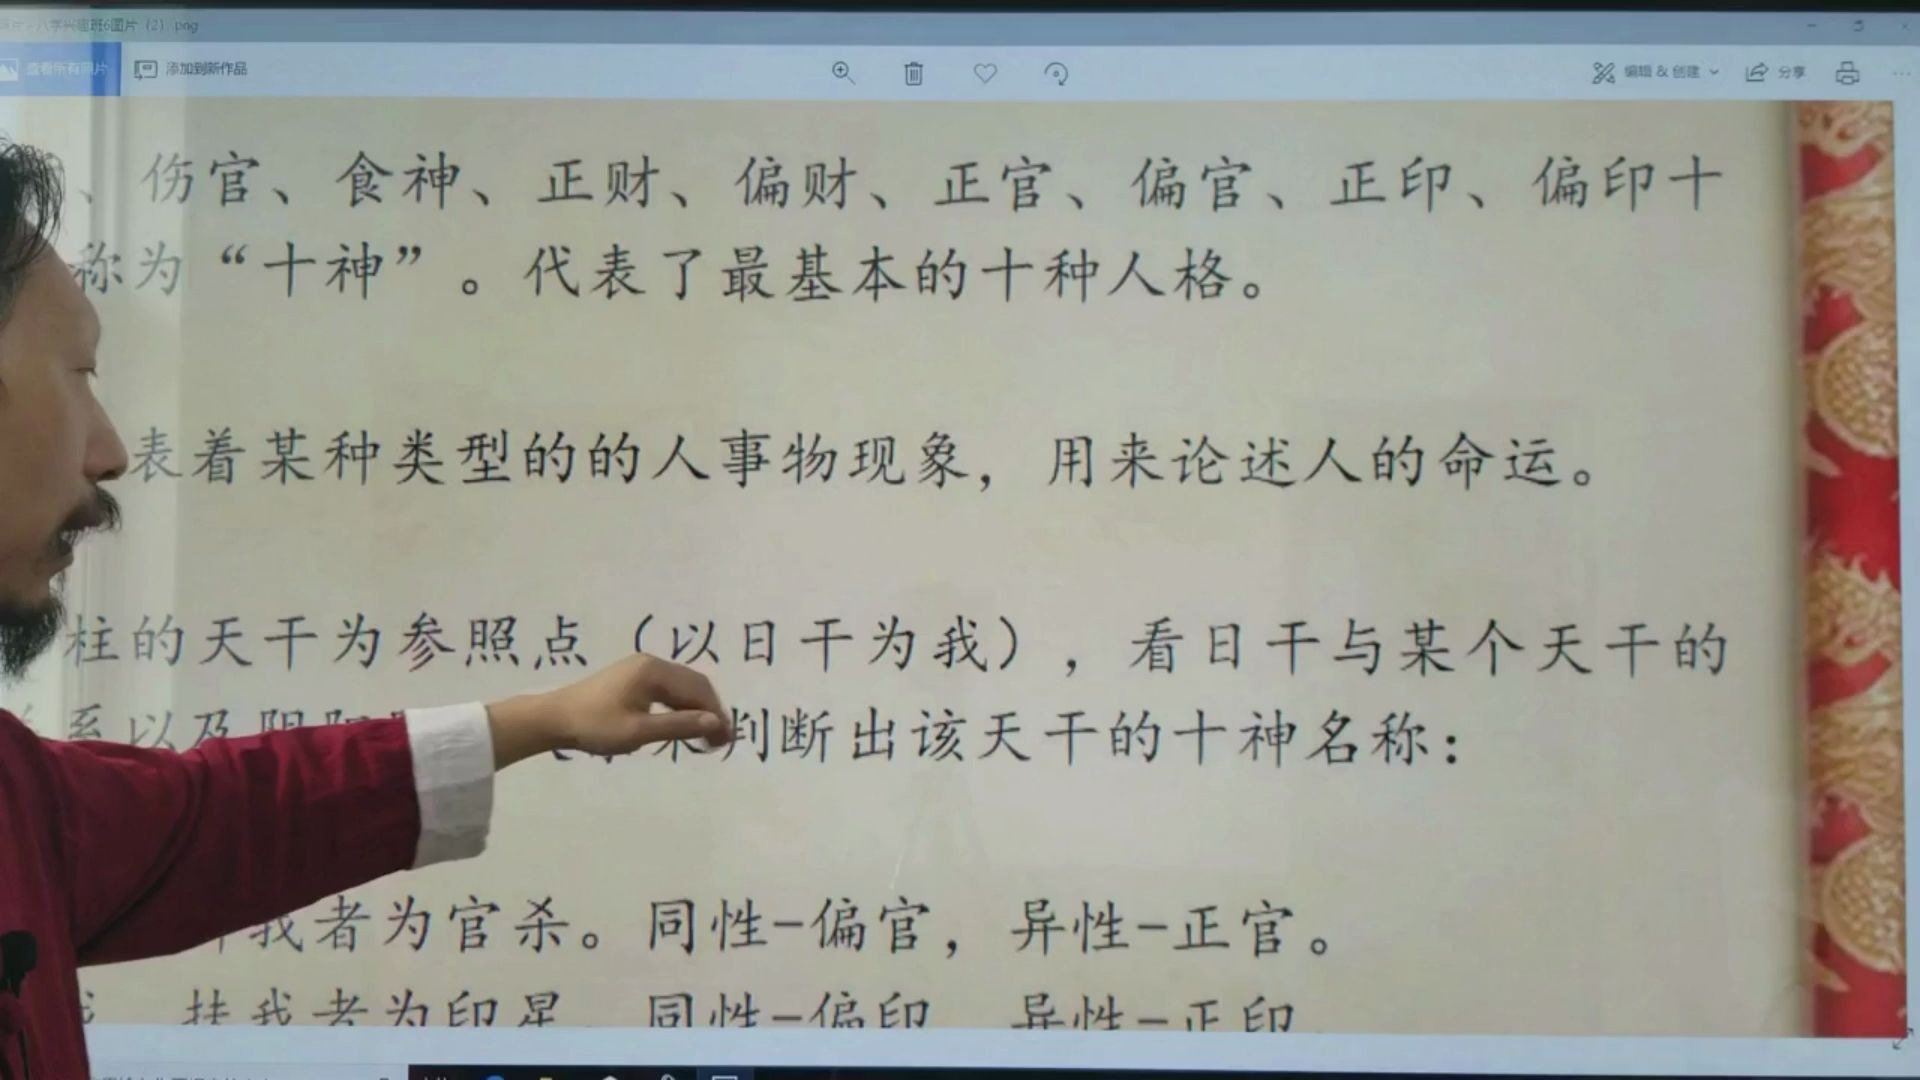 八字兴趣班6图片 (2) .png
查看所有照片 添加到新作品 编辑 & 创建 分享
、伤官、食神、正财、偏财、正官、偏官、正印、偏印十
称为“十神”。代表了最基本的十种人格。
表着某种类型的的人事物现象，用来论述人的命运。
柱的天干为参照点（以日干为我），看日干与某个天干的
系以及阴阳 来判断出该天干的十神名称：
我者为官杀。同性-偏官，异性-正官。
扶我者为印星 同性-偏印 异性-正印